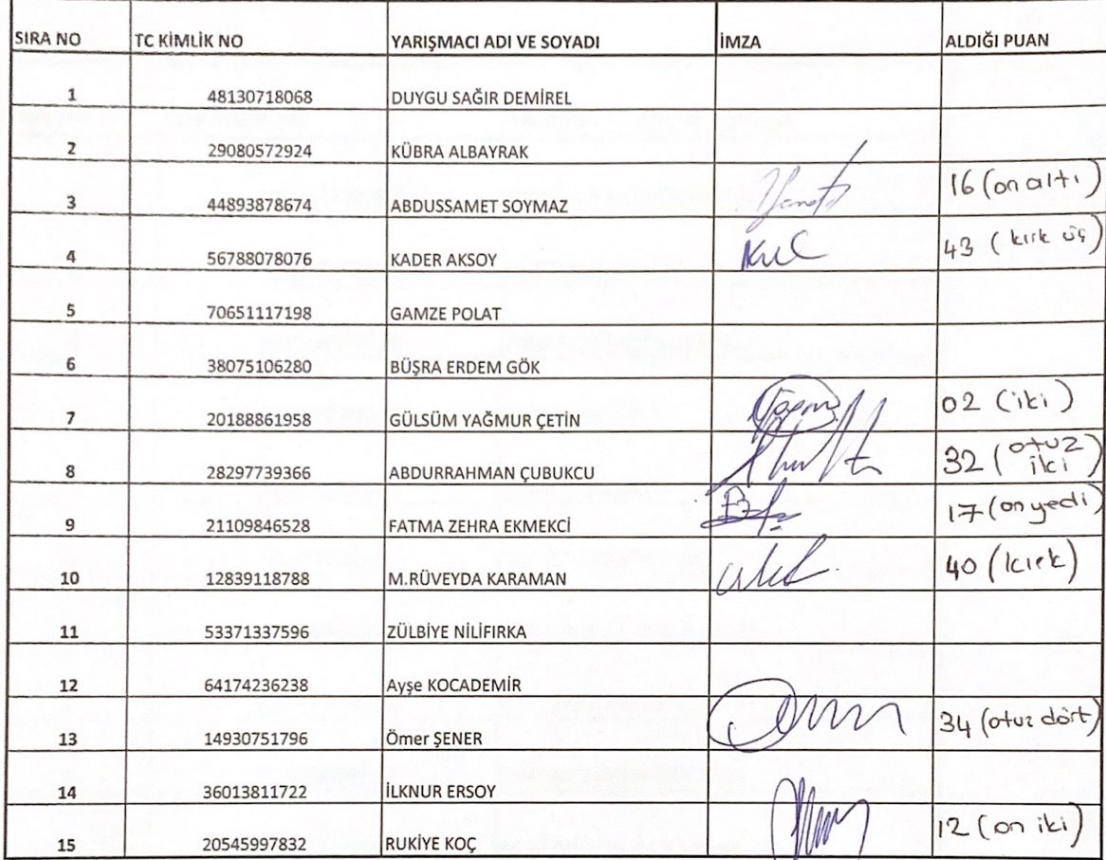 SIRA NO TC KİMLİK NO YARIŞMACI ADI VE SOYADI İMZA ALDIĞI PUAN
1 48130718068 DUYGU SAĞIR DEMİREL
2 29080572924 KÜBRA ALBAYRAK
3 44893878674 ABDUSSAMET SOYMAZ 16 (on altı)
4 56788078076 KADER AKSOY 43 (kırk üç)
5 70651117198 GAMZE POLAT
6 38075106280 BÜŞRA ERDEM GÖK
7 20188861958 GÜLSÜM YAĞMUR ÇETİN 02 (iki)
8 28297739366 ABDURRAHMAN ÇUBUKCU 32 (otuz iki)
9 21109846528 FATMA ZEHRA EKMEKCİ 17 (on yedi)
10 12839118788 M.RÜVEYDA KARAMAN 40 (kırk)
11 53371337596 ZÜLBİYE NİLİFIRKA
12 64174236238 Ayşe KOCADEMİR
13 14930751796 Ömer ŞENER 34 (otuz dört)
14 36013811722 İLKNUR ERSOY
15 20545997832 RUKİYE KOÇ 12 (on iki)